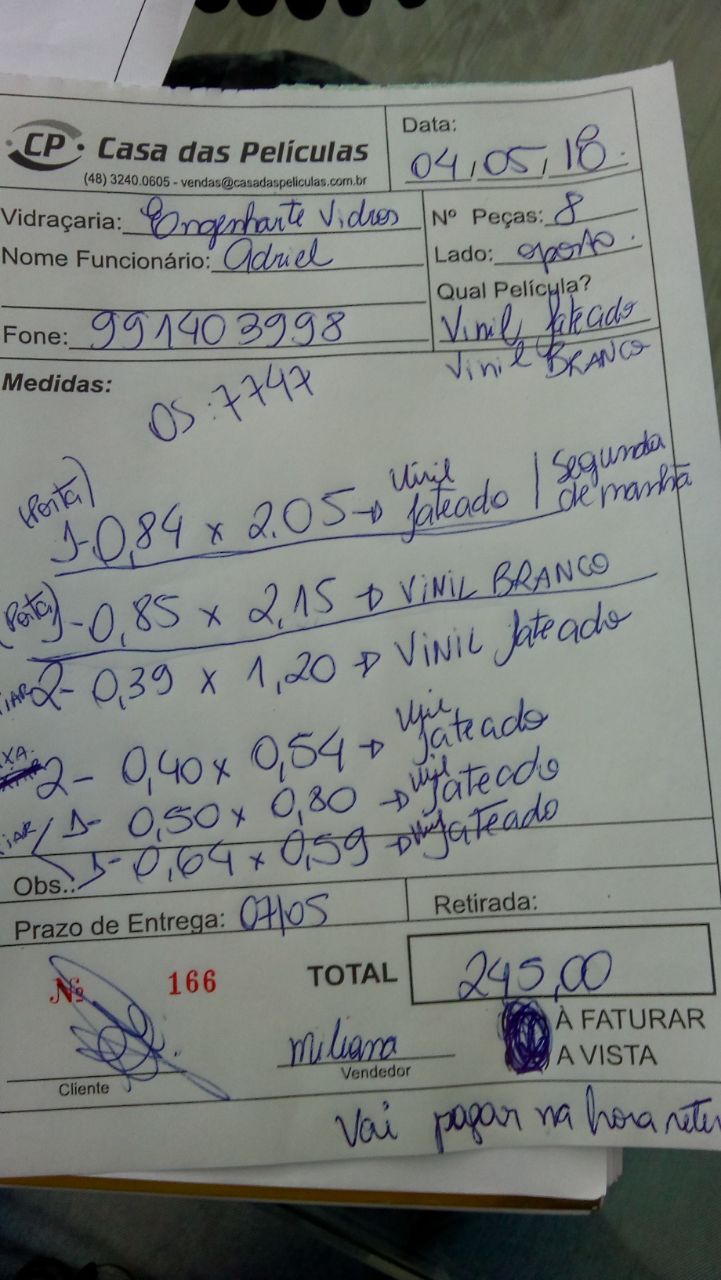 CP Casa das Películas
(48) 3240.0605 - vendas@casadaspeliculas.com.br
Data:
04/05/18
Vidraçaria: Engenharte Vidros
Nº Peças: 8
Nome Funcionário: Adriel
Lado: oposto.
Qual Película?
Vinil Jateado
Vinil BRANCO
Fone: 991403998
Medidas:
OS: 7747
(Porta) 1-0,84 x 2.05 → Vinil Jateado | Segunda de manhã
(Porta) 1-0,85 x 2,15 → VINIL BRANCO
2-0,39 x 1,20 → VINIL Jateado
2-0,40 x 0,54 → Vinil Jateado
1-0,50 x 0,80 → Vinil Jateado
Obs.: 1-0,64 x 0,59 → Vinil Jateado
Prazo de Entrega: 07/05
Retirada:
Nº 166
TOTAL 245,00
À FATURAR
A VISTA
Miliana
Cliente
Vendedor
Vai pagar na hora